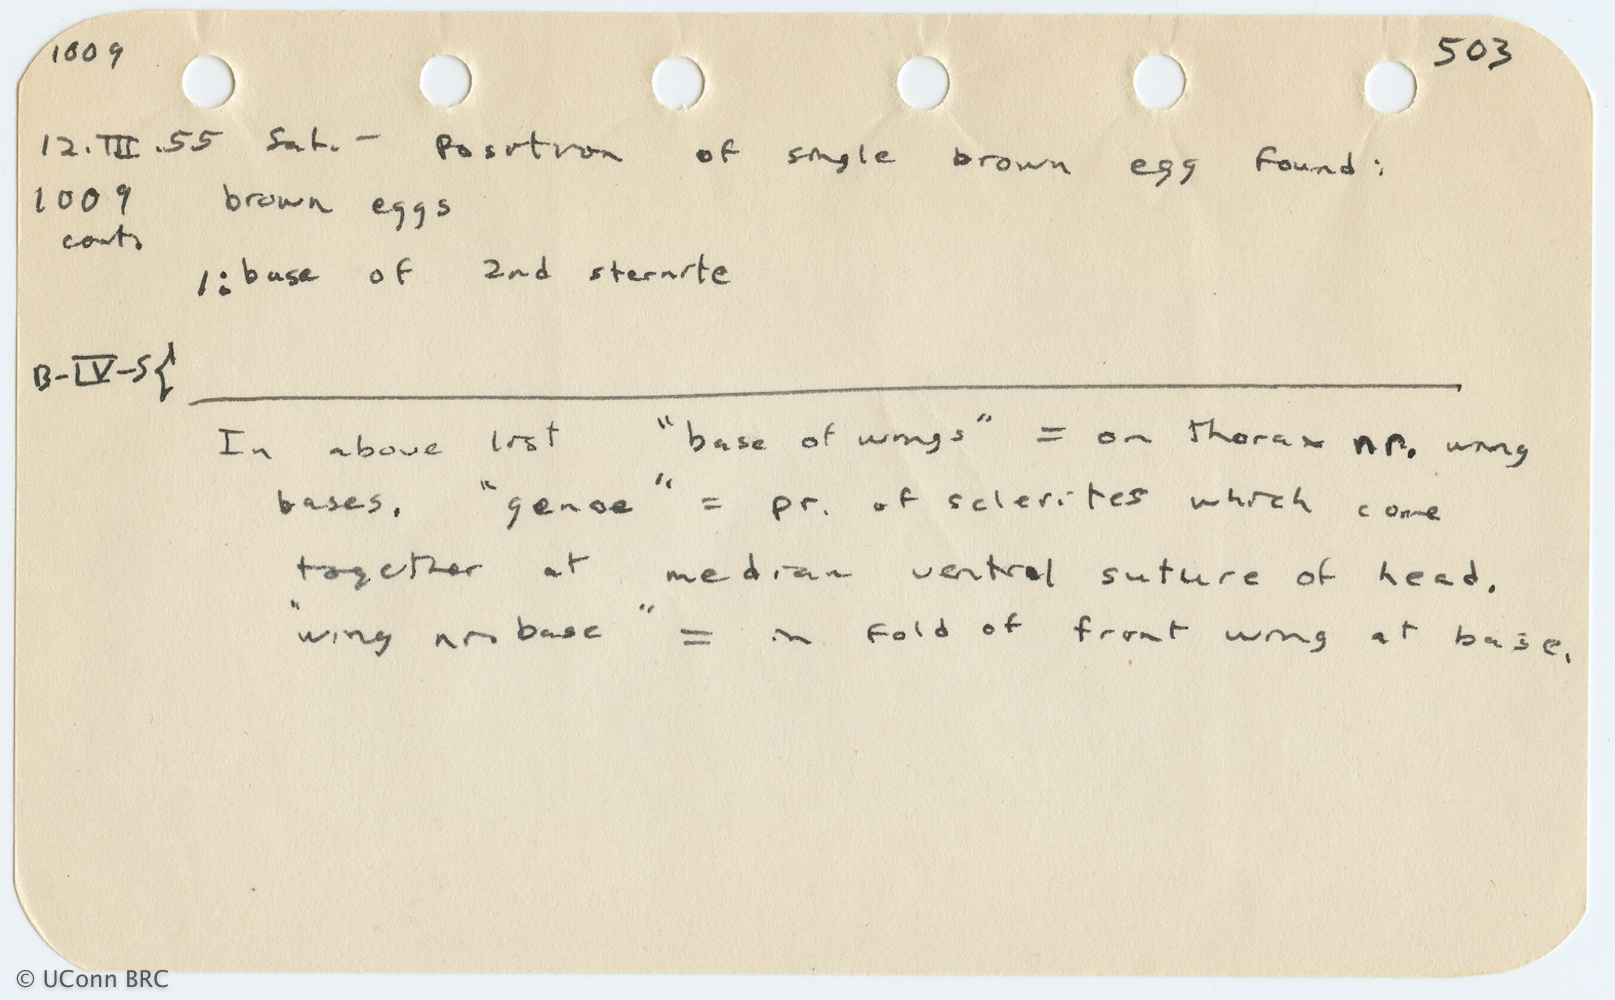 1009 503
12.III.55 Sat. — Position of single brown egg found:
1009 brown eggs
cont.
1: base of 2nd sternite
B-IV-5{
In above list "base of wings" = on thorax nr. wing
bases. "genae" = pr. of sclerites which come
together at median ventral suture of head.
"wing nr. base" = in fold of front wing at base.
© UConn BRC